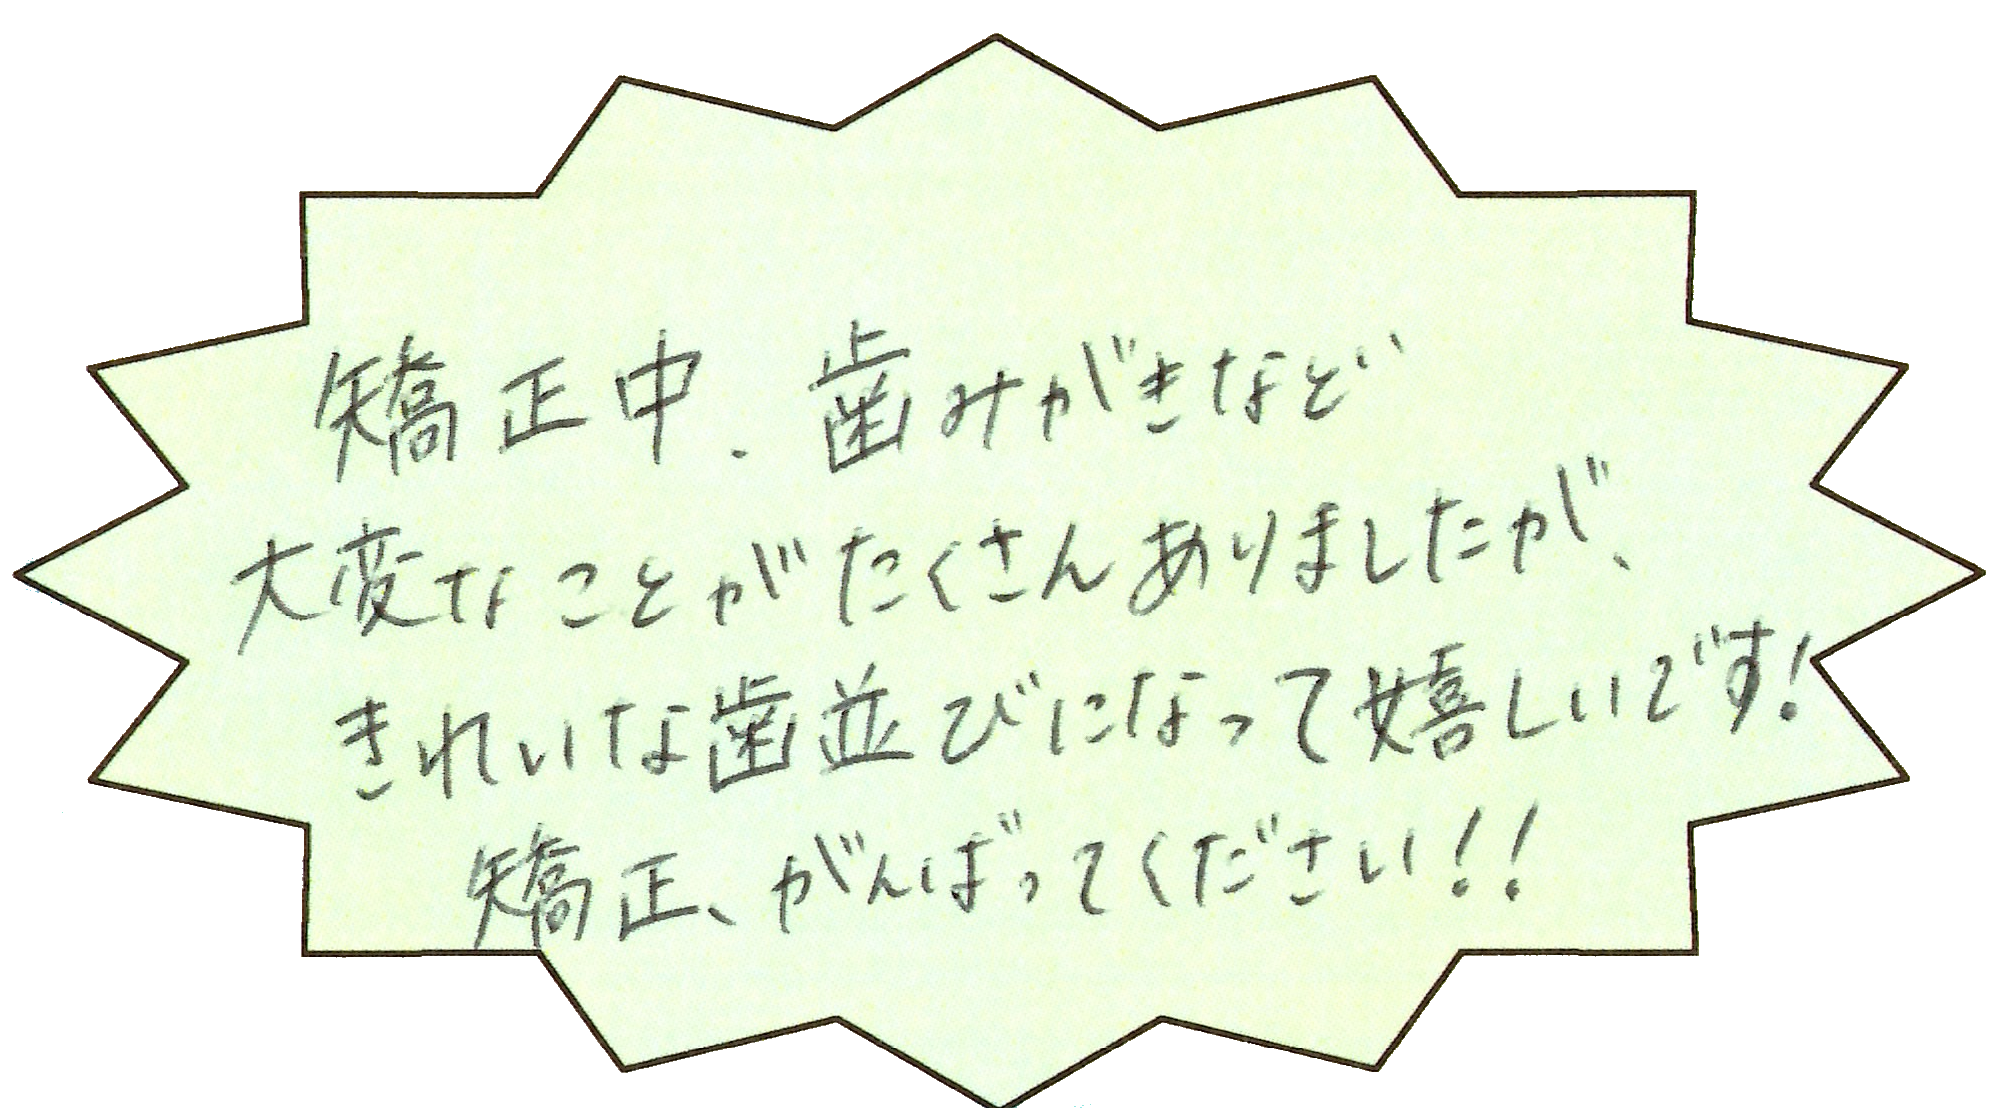 矯正中、歯みがきなど
大変なことがたくさんありましたが、
きれいな歯並びになって嬉しいです!
矯正、がんばってください!!